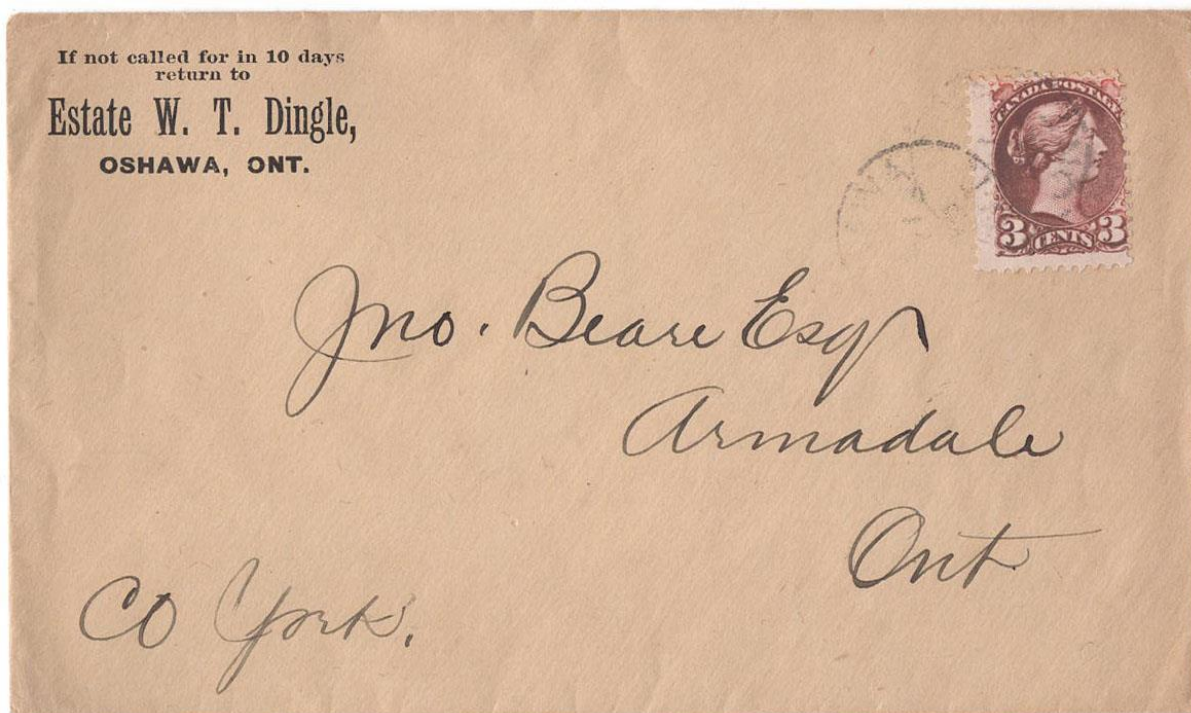 If not called for in 10 days
return to
Estate W. T. Dingle,
OSHAWA, ONT.
CANADA POSTAGE
3 CENTS 3
Jno. Beare Esq
Armadale
Ont
Co York.